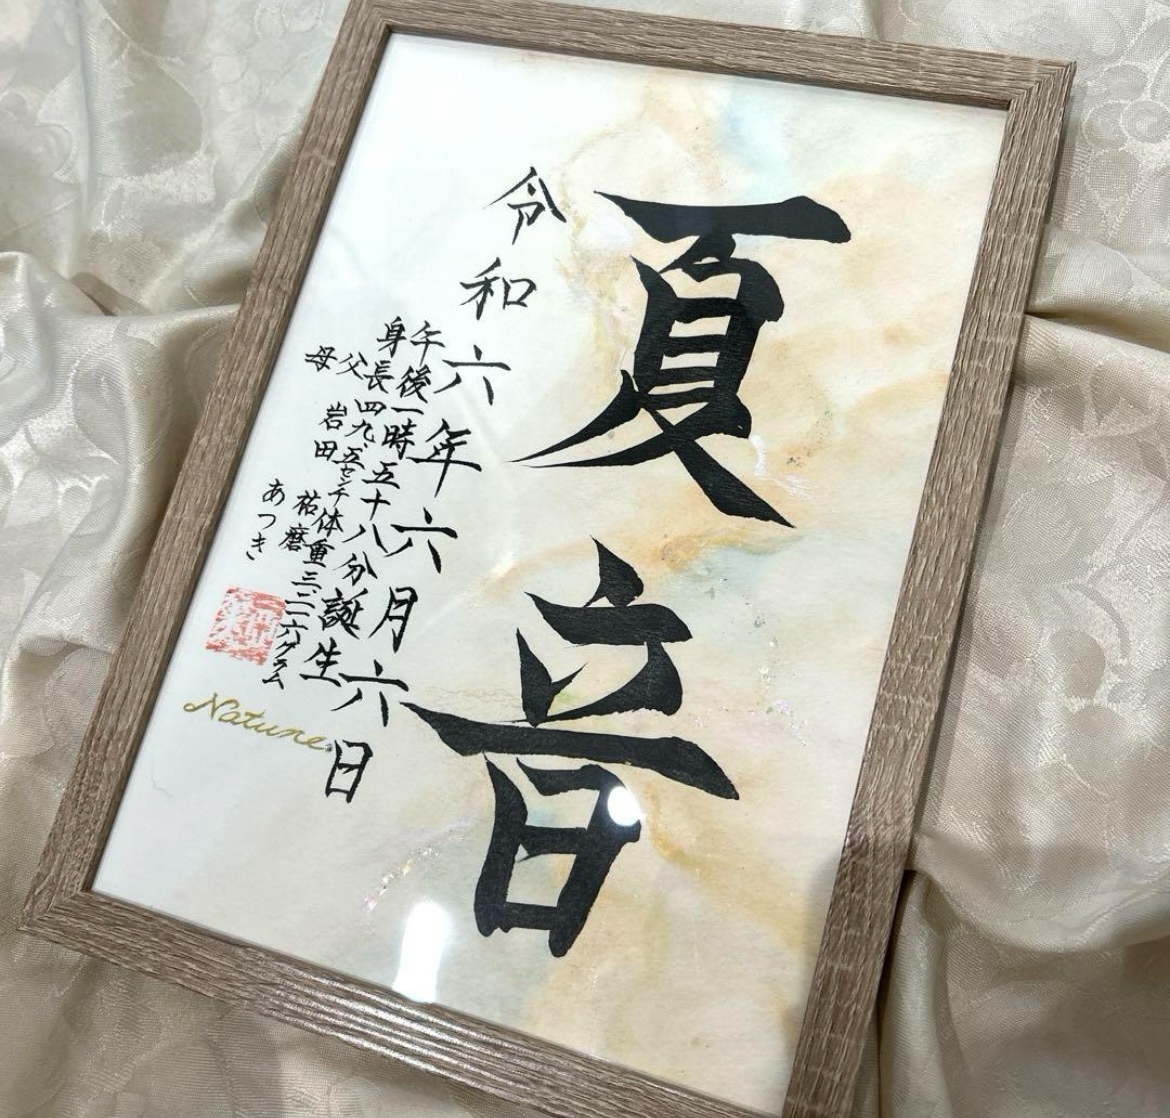 夏音
令和六年六月六日
午後一時五十八分誕生
身長四九.五センチ体重三.二一六グラム
父 岩田 祐磨
母 あつき
Natune